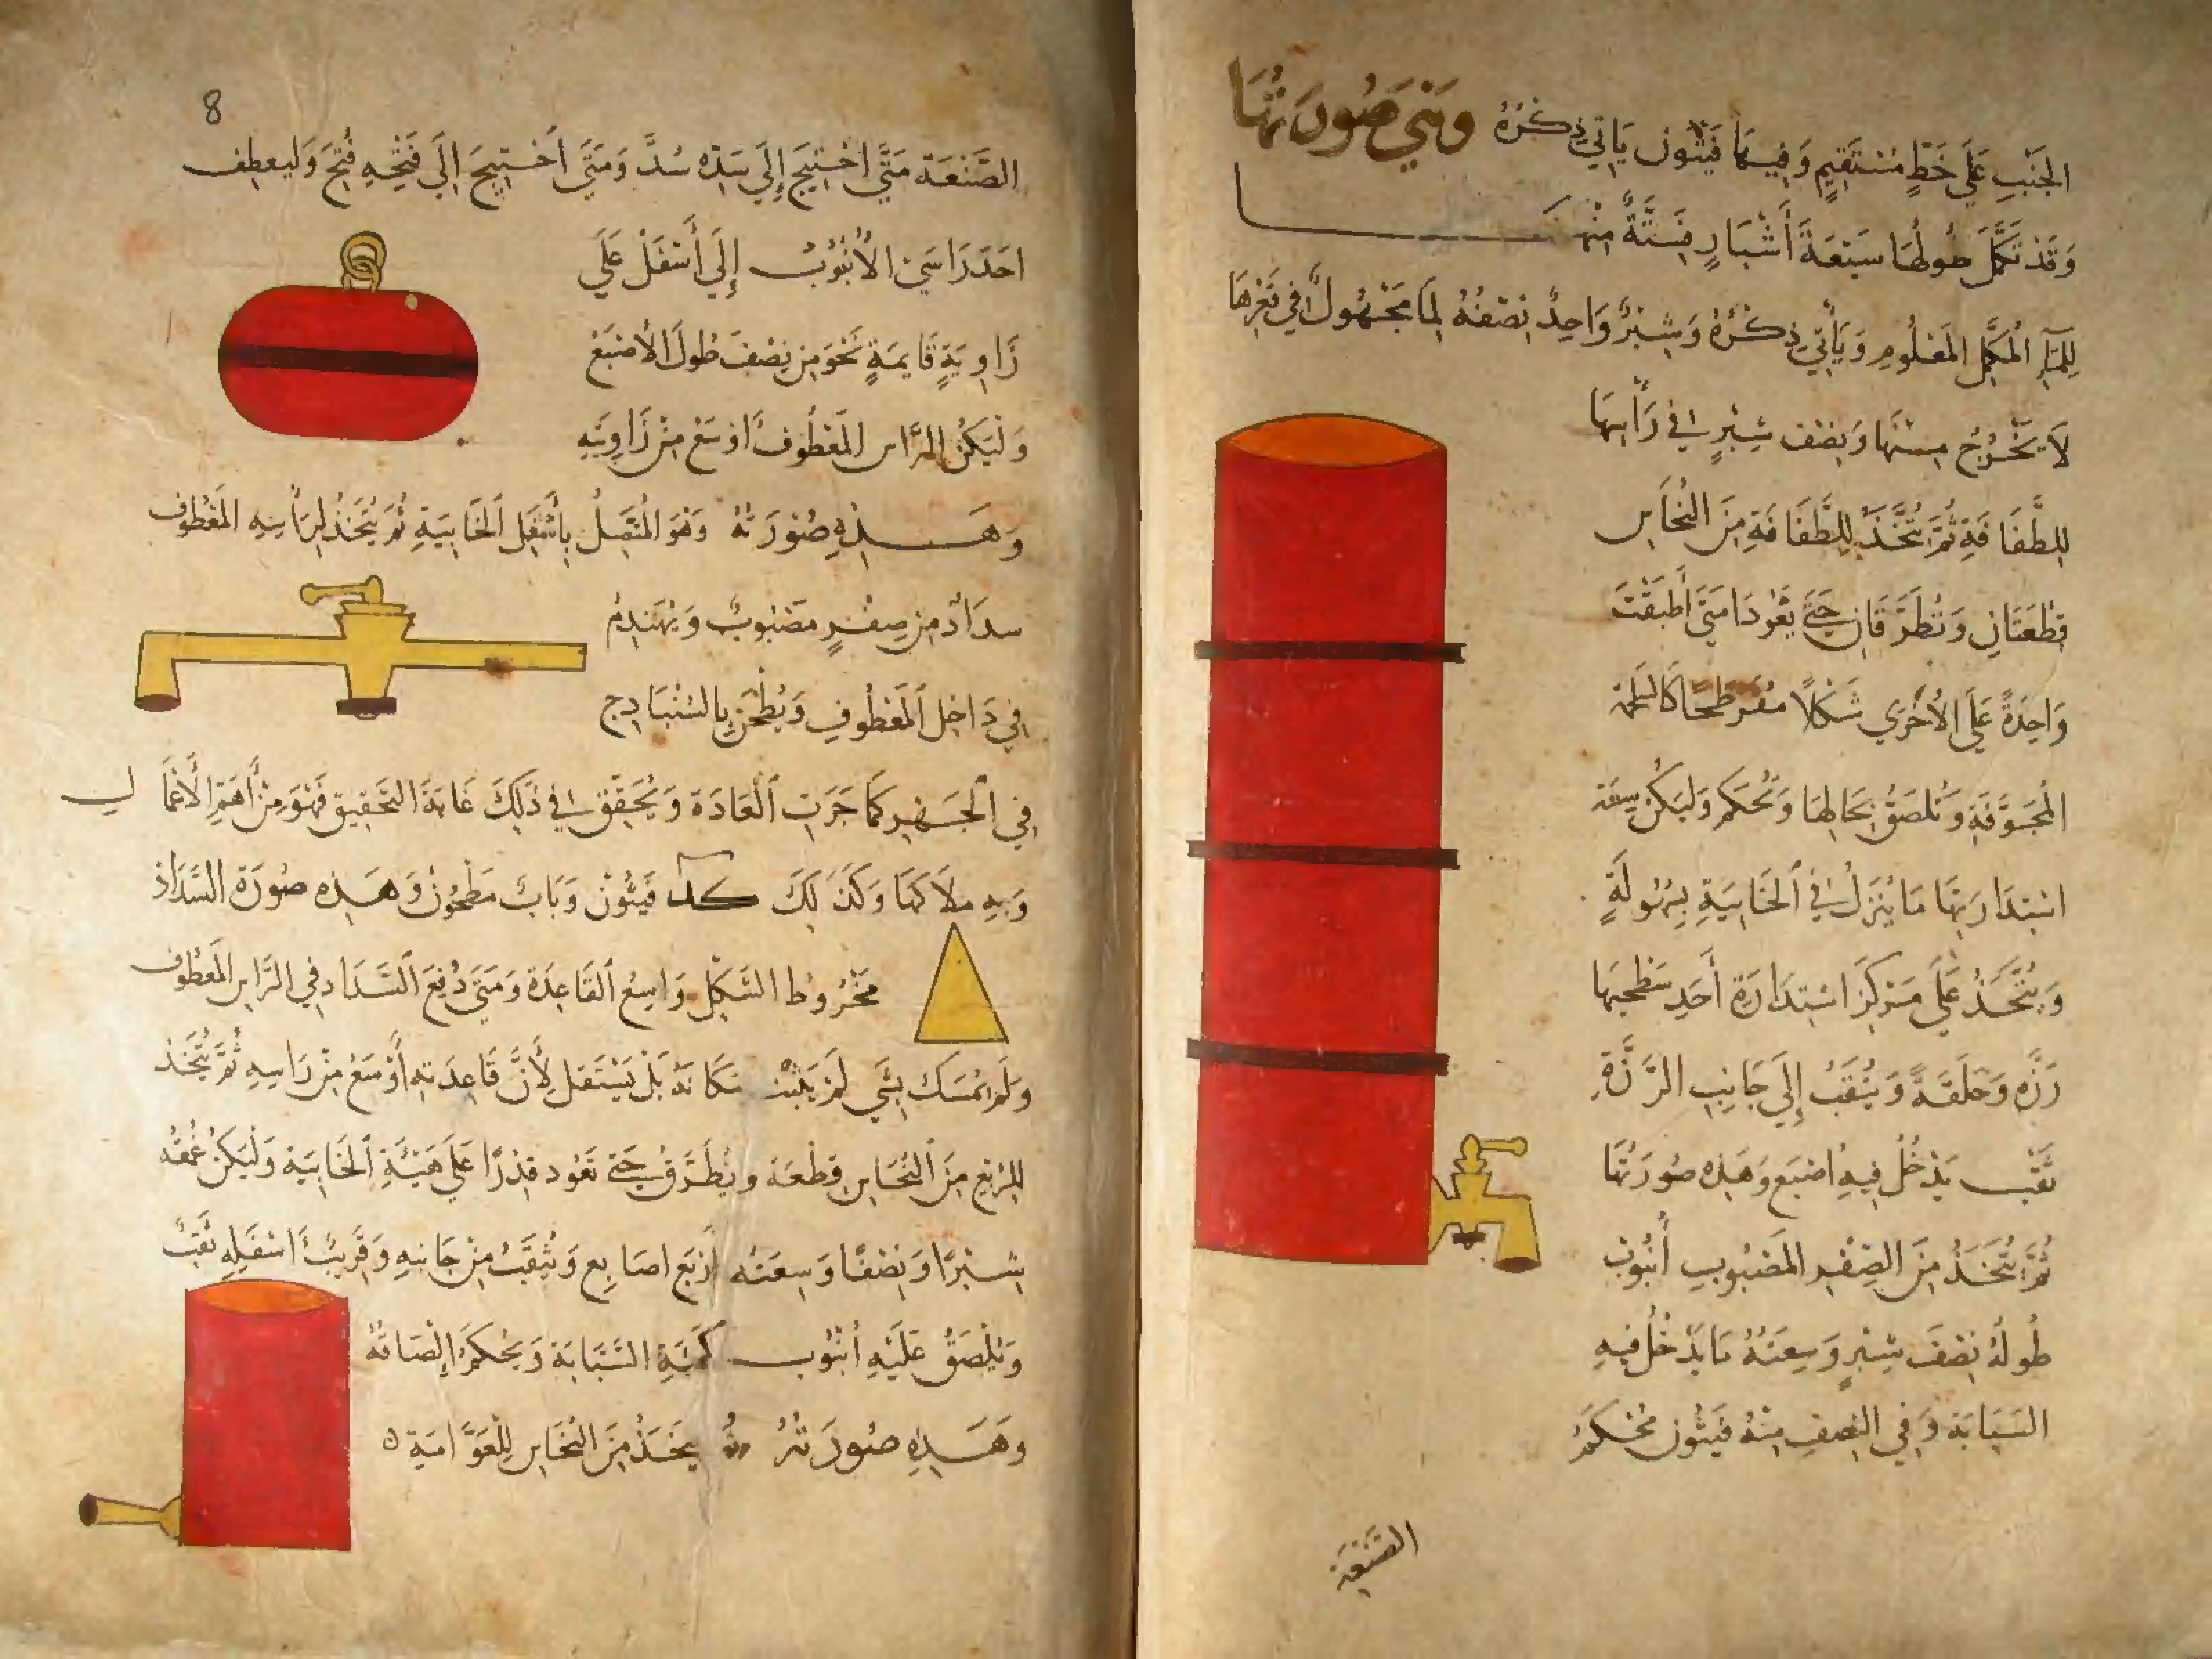 الجَنْبِ عَلَى خَطٍّ مُسْتَقِيمٍ وَفِيهَا فَيْثُون يَأتِي ذِكْرُهُ وَهَذِهِ صُورَتُهَا
وَقَد تَكَمَّلَ طُولُهَا سَبْعَةَ أَشْبَارٍ فَسِتَّةٌ مِنْهَا
لِلمَآءِ المُكَمَّلِ المَعْلُومِ وَيَأتِي ذِكْرُهُ وَشِبْرٌ وَاحِدٌ نِصْفُهُ لِمَا مَجْهُولٌ فِي قَعْرِهَا
لَا يَخْرُجُ مِنْهَا وَنِصْف شِبْرٍ فِي رَأْسِهَا
لِلطَّفَافَةِ ثُمَّ يُتَّخَذُ لِلطَّفَافَةِ مِنَ النُّحَاسِ
قِطْعَتَانِ وَتُطَرَّقَانِ حَتَّى يَعُودَا مَتَى أُطبَقْتَ
وَاحِدَةً عَلَى الأُخْرَي شَكلاً مُفَرطَحًا كَالسلحفة
المُجَوَّفَةِ وَتُلصَقُ بِحَالِهَا وَتُحْكَم وَليَكُن سِعَة
اسْتِدَارَتِهَا مَا يَنْزِلُ فِي الخَابِيَةِ بِسُهُولَةٍ
وَيُتَّخَذُ عَلَى مَرْكَزِ اسْتِدَارَةِ أَحَدِ سَطْحَيْهَا
رَزَّه وَحَلَقَةً وَيُثقَبُ إِلَى جَانِبِ الرَّزَّةِ
ثَقْب يَدْخُلُ فِيهِ اصْبَع وَهَذِهِ صُورَتُهَا
ثُمَّ يُتَّخَذُ مِنَ الصِّفْرِ المَصْبُوبِ أُنْبُوب
طُولُهُ نِصْفَ شِبْرٍ وَسِعَتُهُ مَا يَدْخُلُ فِيهِ
السَّبَّابَة وَفِي النِصفِ مِنْهُ فَيْثُون مُحْكَمُ
الصَّنْعَة
8
الصَّنْعَة مَتَى احْتِيجَ إِلَى سَدِّهِ سُدَّ وَمَتَى احْتِيجَ إِلَى فَتْحِهِ فُتِحَ وَليعطف
احَدَ رَاسَي الأُنْبُوب إِلَى أَسْفَلْ عَلَي
زَاوِيَةٍ قَايمَةٍ نَحْوَ مِن نِصْف طُولَ الاصْبَعْ
وَلْيَكُن الرَّاس المَعْطُوف أوْسَعْ مِنْ زَاوِيَتِهِ
وَهَذِهِ صُورَتهُ وَهُوَ المُتَّصِلُ بِأَسْفَلِ الخَابِيَةِ ثُمَّ يُتَّخَذُ لِرَأسِهِ المَعْطُوف
سدَادٌ مِن صِفْرٍ مَصْبُوبٌ وَيُهَندَمُ
فِي دَاخِلِ المَعْطُوفِ وَيُطْحَن بِالسُّنْبَادِج
فِي الجَهْرِ كَمَا جَرَتِ العَادَة وَيُحَقَّقْ فِي ذَلِكَ غَايَةَ التَحْقِيق فَهُوَ مِنْ أَهَمِّ الأَعْمَال
وَبِهِ مَلَاكهَا وَكَذَلِكَ كُلّ فَيْثُون وَبَابٌ مَطْحُون وَهَذِهِ صُورَة السَّدَاد
مَخْرُوط الشَّكْل وَاسِعُ القَاعِدَة وَمَتَى دُفِعَ السَّدَاد فِي الرَّاس المَعْطُوف
وَلَم يُمسَك بِشَي لَمْ يَثْبُت مَكَانَهُ بَلْ يَسْتَفل لِأَنَّ قَاعِدَته أَوْسَعُ مِنْ رَاسِهِ ثُمَّ يُتَّخَذ
لِلرُّبْعِ مِنَ النُحَاسِ قِطْعَة وَيُطَرَّقُ حَتَّى تَعُود قِدْرًا عَلَى هَيْئَةِ الخَابِيَة وَلْيَكُنْ عُمْقُه
شِبْرًا وَنِصْفًا وَسِعَتُه أَرْبَع اصَابِع وَيُثْقَبُ مِنْ جَانِبِهِ وَقَرِيبُ اسْفَلِهِ ثَقْبٌ
وَيُلْصَقُ عَلَيْهِ أُنْبُوب كَهَيْئَةِ السَّبَّابَة وَيُحْكَمُ إِلْصَاقُهُ
وهَذِهِ صُورَتُهُ ثُمّ يتخَذُ مِنَ النُحَاسِ لِلْعَوَّامَةِ ه